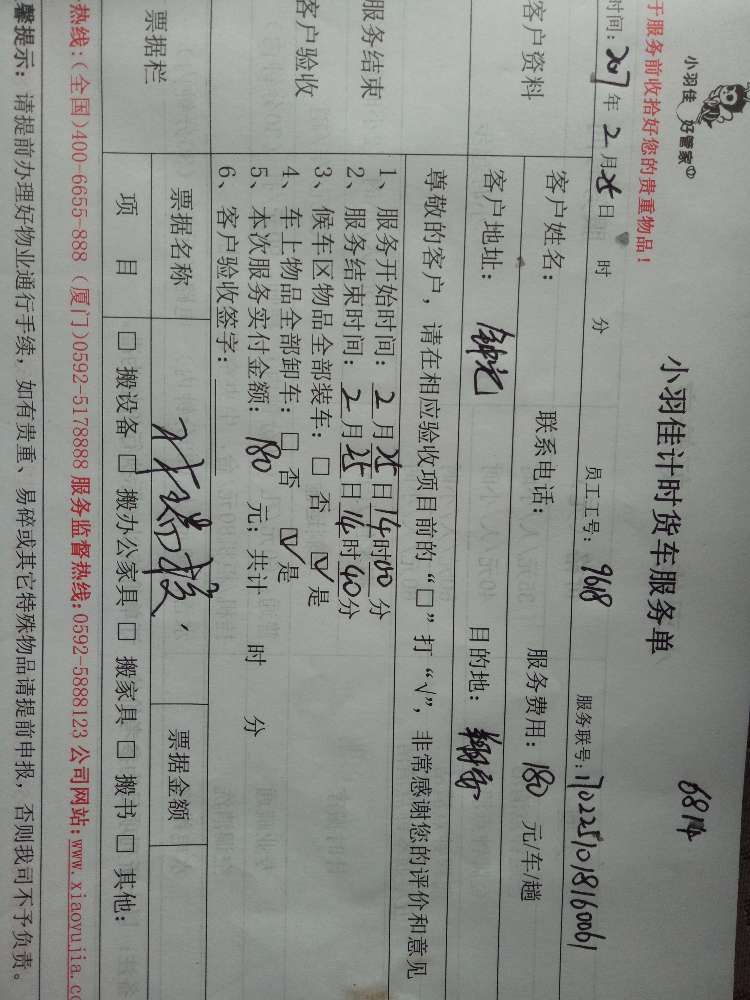 小羽佳 好管家
6814
小羽佳计时货车服务单
于服务前收拾好您的贵重物品！
时间：2017年2月25日 时 分 员工工号：9618 服务联号：1702251018160061
客户资料
客户姓名： 联系电话： 服务费用：180 元/车/趟
客户地址： 目的地：
尊敬的客户，请在相应验收项目前的“□”打“√”，非常感谢您的评价和意见
服务结束
客户验收
1、服务开始时间：2月25日14时00分
2、服务结束时间：2月25日14时40分
3、候车区物品全部装车：□ 否 ☑ 是
4、车上物品全部卸车：□ 否 ☑ 是
5、本次服务实付金额：180 元；共计 时 分
6、客户验收签字：
票据栏
票据名称 票据金额
项 目 □ 搬设备 □ 搬办公家具 □ 搬家具 □ 搬书 □ 其他：
热线：(全国)400-6655-888 (厦门)0592-5178888 服务监督热线：0592-5888123 公司网站：www.xiaoyujia.co
馨提示：请提前办理好物业通行手续，如有贵重、易碎或其它特殊物品请提前申报，否则我司不予负责。